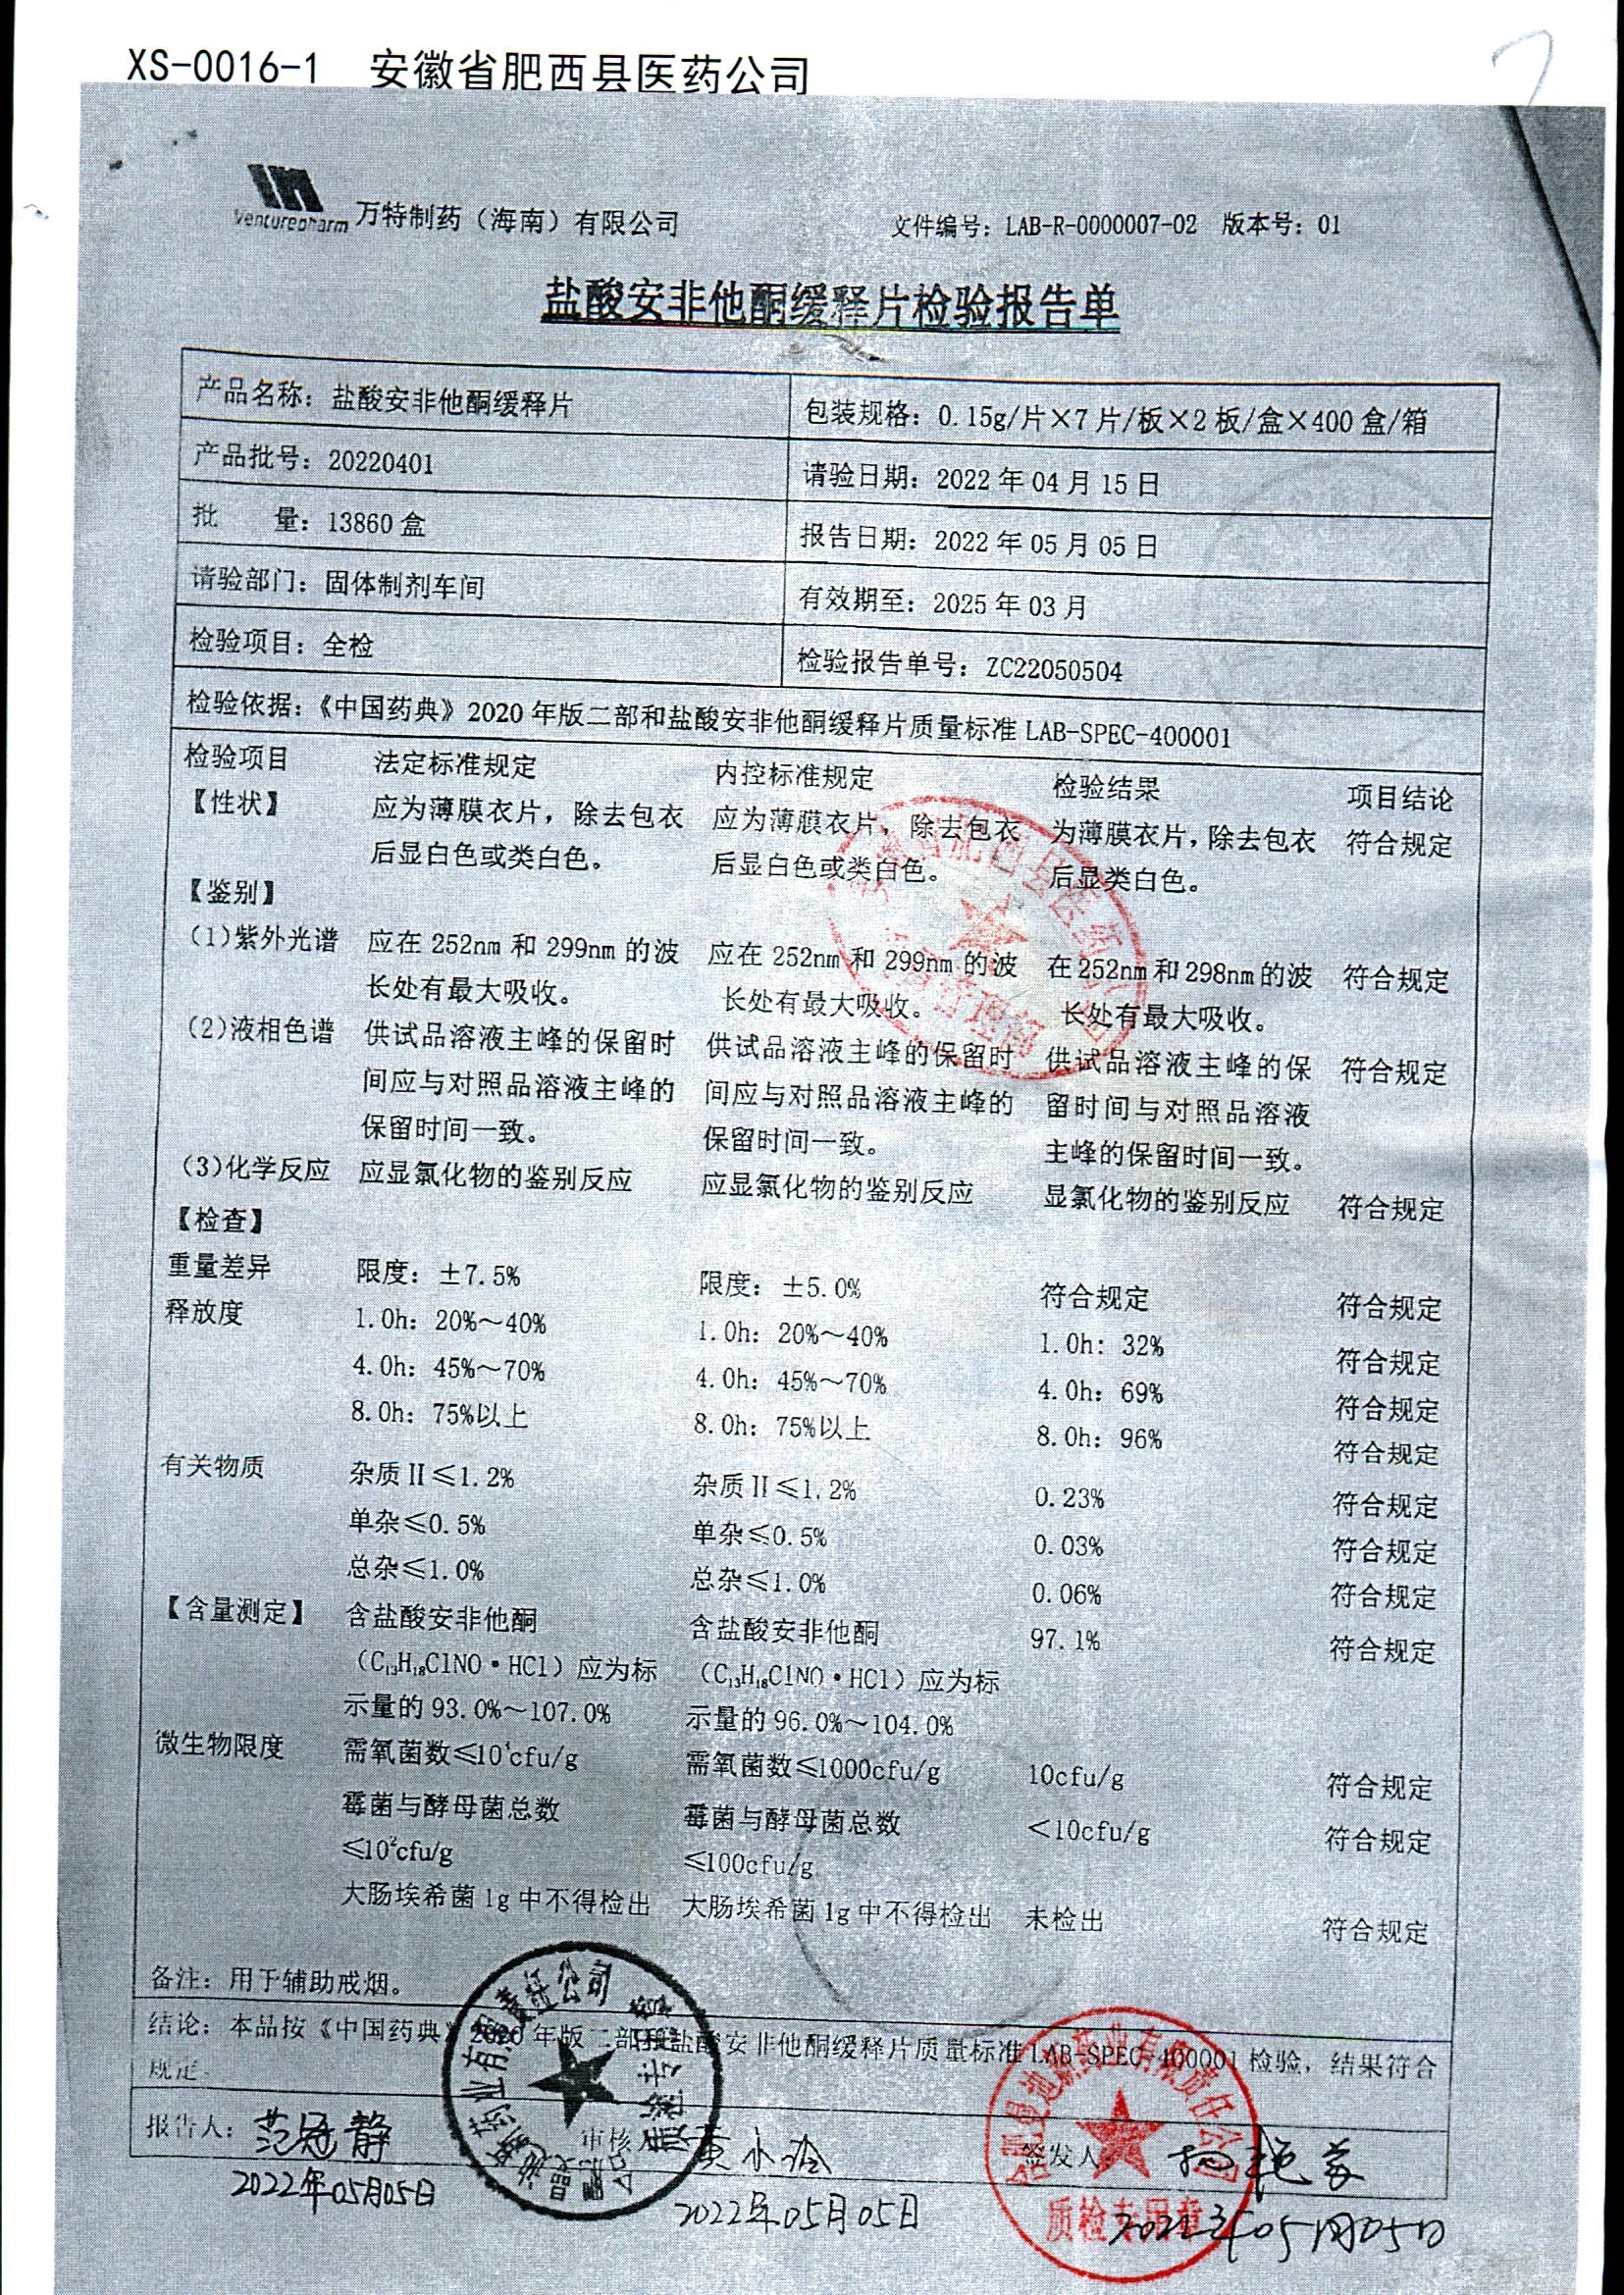 XS-0016-1 安徽省肥西县医药公司
Venturepharm 万特制药（海南）有限公司 文件编号：LAB-R-0000007-02 版本号：01
盐酸安非他酮缓释片检验报告单
产品名称：盐酸安非他酮缓释片 包装规格：0.15g/片×7片/板×2板/盒×400盒/箱
产品批号：20220401 请验日期：2022年04月15日
批 量：13860盒 报告日期：2022年05月05日
请验部门：固体制剂车间 有效期至：2025年03月
检验项目：全检 检验报告单号：ZC22050504
检验依据：《中国药典》2020年版二部和盐酸安非他酮缓释片质量标准LAB-SPEC-400001
检验项目 法定标准规定 内控标准规定 检验结果 项目结论
【性状】 应为薄膜衣片，除去包衣 应为薄膜衣片，除去包衣 为薄膜衣片，除去包衣 符合规定
后显白色或类白色。 后显白色或类白色。 后显类白色。
【鉴别】
(1)紫外光谱 应在252nm和299nm的波 应在252nm和299nm的波 在252nm和298nm的波 符合规定
长处有最大吸收。 长处有最大吸收。 长处有最大吸收。
(2)液相色谱 供试品溶液主峰的保留时 供试品溶液主峰的保留时 供试品溶液主峰的保 符合规定
间应与对照品溶液主峰的 间应与对照品溶液主峰的 留时间与对照品溶液
保留时间一致。 保留时间一致。 主峰的保留时间一致。
(3)化学反应 应显氯化物的鉴别反应 应显氯化物的鉴别反应 显氯化物的鉴别反应 符合规定
【检查】
重量差异 限度：±7.5% 限度：±5.0% 符合规定 符合规定
释放度 1.0h：20%～40% 1.0h：20%～40% 1.0h：32% 符合规定
4.0h：45%～70% 4.0h：45%～70% 4.0h：69% 符合规定
8.0h：75%以上 8.0h：75%以上 8.0h：96% 符合规定
有关物质 杂质II≤1.2% 杂质II≤1.2% 0.23% 符合规定
单杂≤0.5% 单杂≤0.5% 0.03% 符合规定
总杂≤1.0% 总杂≤1.0% 0.06% 符合规定
【含量测定】 含盐酸安非他酮 含盐酸安非他酮 97.1% 符合规定
（C₁₃H₁₈ClNO•HCl）应为标 （C₁₃H₁₈ClNO•HCl）应为标
示量的93.0%～107.0% 示量的96.0%～104.0%
微生物限度 需氧菌数≤10³cfu/g 需氧菌数≤1000cfu/g 10cfu/g 符合规定
霉菌与酵母菌总数 霉菌与酵母菌总数 <10cfu/g 符合规定
≤10²cfu/g ≤100cfu/g
大肠埃希菌1g中不得检出 大肠埃希菌1g中不得检出 未检出 符合规定
备注：用于辅助戒烟。
结论：本品按《中国药典》2020年版二部和盐酸安非他酮缓释片质量标准LAB-SPEC-400001检验，结果符合
规定。
报告人：范冠静 审核人 签发人：
2022年05月05日 2022年05月05日 2022年05月05日
质检专用章